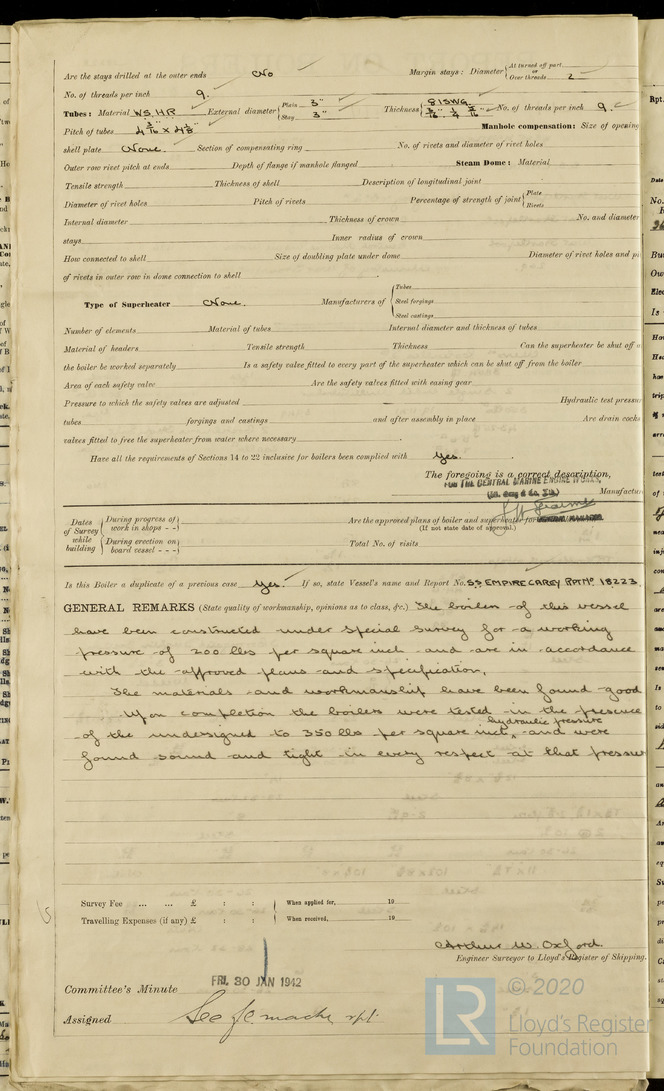 Are the stays drilled at the outer ends No Margin stays: Diameter { At turned off part or Over threads 2
No. of threads per inch 9.
Tubes: Material W.S.H.R External diameter { Plain 3" Stay 3" Thickness { 8 I.S.W.G. 3/16 1/4 5/16" No. of threads per inch 9.
Pitch of tubes 4 3/16" x 4 1/8" Manhole compensation: Size of opening
shell plate None. Section of compensating ring No. of rivets and diameter of rivet holes
Outer row rivet pitch at ends Depth of flange if manhole flanged Steam Dome: Material
Tensile strength Thickness of shell Description of longitudinal joint
Diameter of rivet holes Pitch of rivets Percentage of strength of joint { Plate Rivets
Internal diameter Thickness of crown No. and diameter
stays Inner radius of crown
How connected to shell Size of doubling plate under dome Diameter of rivet holes and pi
of rivets in outer row in dome connection to shell
Type of Superheater None. Manufacturers of { Tubes Steel forgings Steel castings
Number of elements Material of tubes Internal diameter and thickness of tubes
Material of headers Tensile strength Thickness Can the superheater be shut off a
the boiler be worked separately Is a safety valve fitted to every part of the superheater which can be shut off from the boiler
Area of each safety valve Are the safety valves fitted with easing gear
Pressure to which the safety valves are adjusted Hydraulic test pressur
tubes forgings and castings and after assembly in place Are drain cocks
valves fitted to free the superheater from water where necessary
Have all the requirements of Sections 14 to 22 inclusive for boilers been complied with Yes.
The foregoing is a correct description,
FOR THE CENTRAL MARINE ENGINE WORKS,
(Wm. Gray & Co. Ltd.) Manufactur
GENERAL MANAGER
Dates of Survey while building { During progress of work in shops - - } Are the approved plans of boiler and superheater for
(If not state date of approval.)
{ During erection on board vessel - - - } Total No. of visits
Is this Boiler a duplicate of a previous case Yes. If so, state Vessel's name and Report No. S.S EMPIRE CAREY RPT No 18223
GENERAL REMARKS (State quality of workmanship, opinions as to class, &c.) The boilers of this vessel
have been constructed under special survey for a working
pressure of 200 lbs per square inch and are in accordance
with the approved plans and specification.
The materials and workmanship have been found good
Upon completion the boilers were tested in the presence
of the undersigned to 350 lbs per square inch, hydraulic pressure and were
found sound and tight in every respect at that pressure
Survey Fee ... ... £ : : When applied for, 19
Travelling Expenses (if any) £ : : When received, 19
Arthur W. Oxford.
Engineer Surveyor to Lloyd's Register of Shipping.
Committee's Minute FRI. 30 JAN 1942
Assigned See J.E. machy rpt.
LR © 2020
Lloyd's Register
Foundation